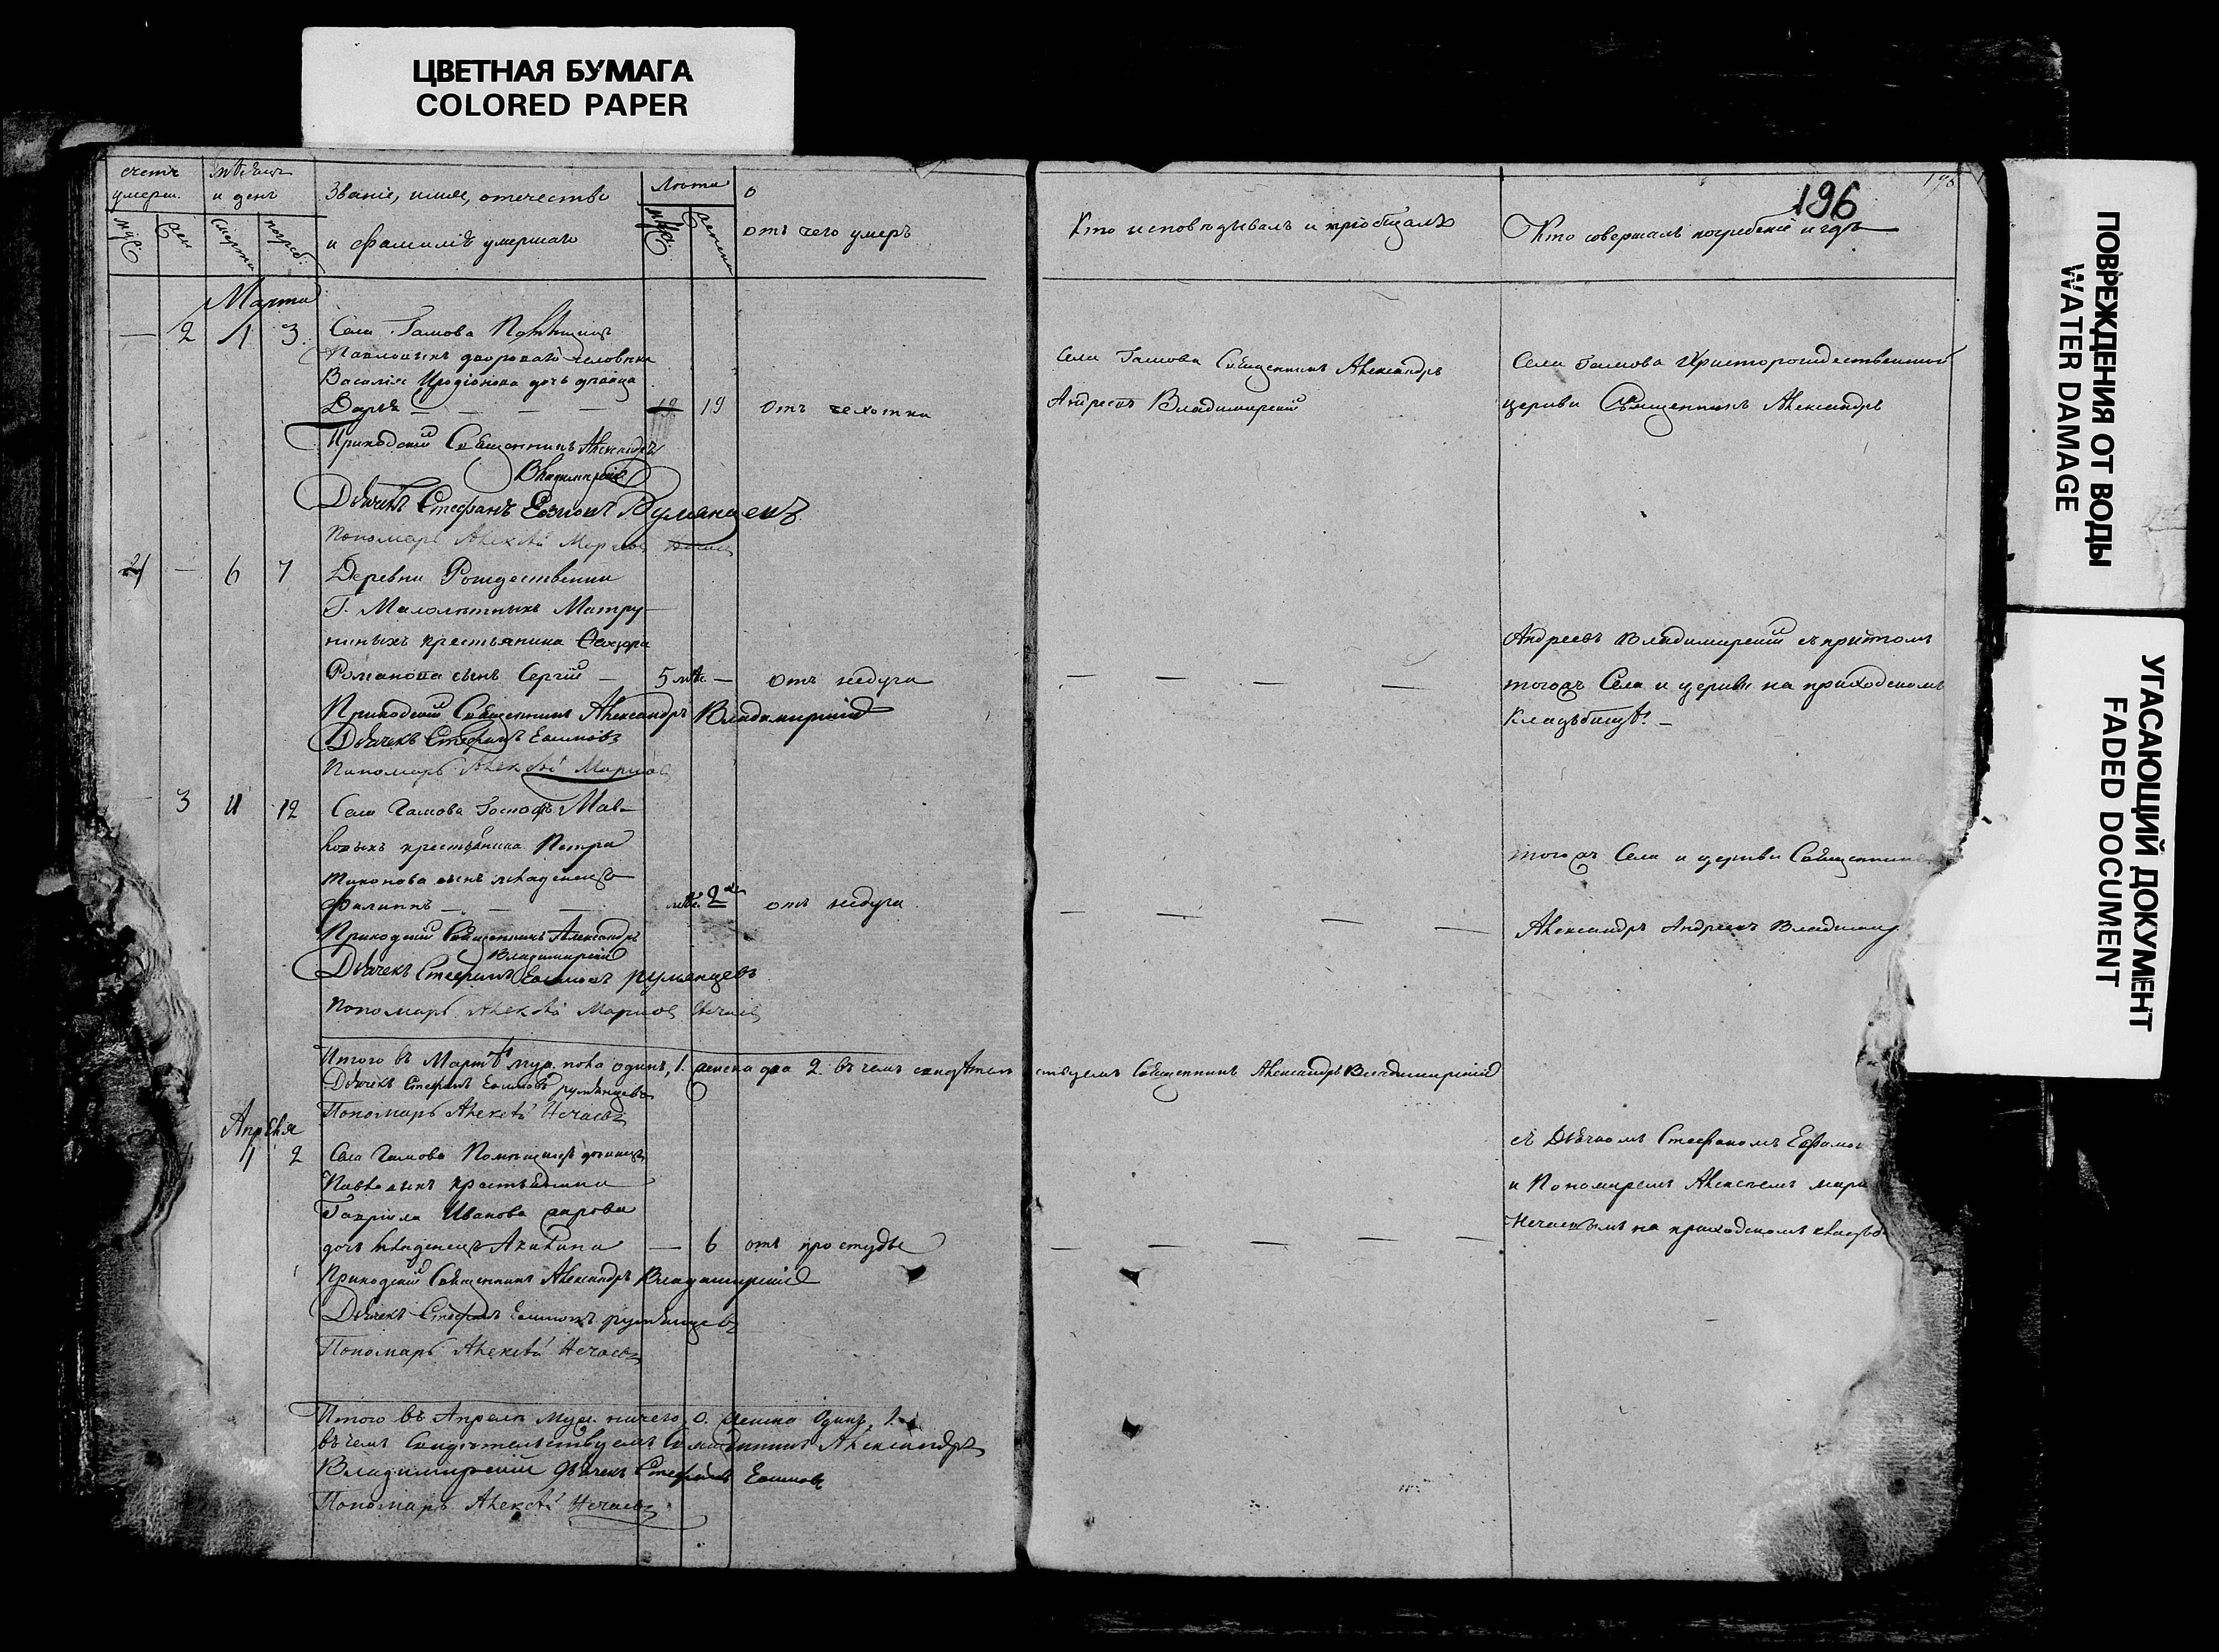 ЦВЕТНАЯ БУМАГА
COLORED PAPER
счетъ умерш.
мѣсяцъ и день
Званіе, имя, отечество
и фамилія умершаго
Лѣта
отъ чего умеръ
муж. жен. смерти погреб. муж. женска
Марта
— 2 1 3 Села Гамова
дворового человѣка
Василія Иродіонова дочь дѣвица
Дарья — — — — 19 19 отъ чехотки
Приходскій Священникъ Александръ
Владимирскій
Дьячекъ Стефанъ Румянцевъ
Пономарь Алексѣй Марковъ
2 — 6 7 Деревни Рождествѣнки
Г. Малолѣтныхъ Матру-
ниныхъ крестьянина
Романова сынъ Сергій — 5 лѣт — отъ недуга
Приходскій Священникъ Александръ Владимирскій
Дьячекъ Стефанъ
Пономарь Алексѣй Марковъ
3 11 12 Села Гамова Господъ
крестьянина Петра
Тихонова сынъ младенецъ
Филиппъ — — — 2 отъ недуга
Приходскій Священникъ Александръ
Владимирскій
Дьячекъ Стефанъ румянцевъ
Пономарь Алексѣй Марковъ
Итого въ Мартѣ муж. пола одинъ, 1. женска два 2. въ чемъ свидѣтель
Дьячекъ Стефанъ румянцевъ
Пономарь Алексѣй Нечаевъ
Апрѣля
1 2 Села Гамова
крестьянина
Гаврила Иванова
дочь младенецъ Акилина — 6 отъ простуды
Приходскій Священникъ Александръ Владимирскій
Дьячекъ Стефанъ румянцевъ
Пономарь Алексѣй Нечаевъ
Итого въ Апрелѣ муж. ничего, 0. женска одинъ, 1.
въ чемъ свидѣтельствуемъ Священникъ Александръ
Владимирскій дьячекъ Стефанъ
Пономарь Алексѣй Нечаевъ
196
Кто исповѣдывалъ и пріобщалъ
Кто совершалъ погребеніе и гдѣ
Села Гамова Священникъ Александръ
Андреевъ Владимирскій
Села Гамова Христорождественской
церкви Священникъ Александръ
Андреевъ Владимирскій съ притомъ
тогожъ Села и церкви на приходскомъ
Кладьбищѣ. —
— — — —
тогожъ Села и церкви Священни
Александръ Андреевъ Владими
— — — —
ствуемъ Священникъ Александръ Владимирскій
съ Дьячкомъ Стефаномъ
и Пономаремъ Алексѣемъ марк
Нечаевымъ на приходскомъ кладьб
— — — — —
ПОВРЕЖДЕНИЯ ОТ ВОДЫ
WATER DAMAGE
УГАСАЮЩИЙ ДОКУМЕНТ
FADED DOCUMENT